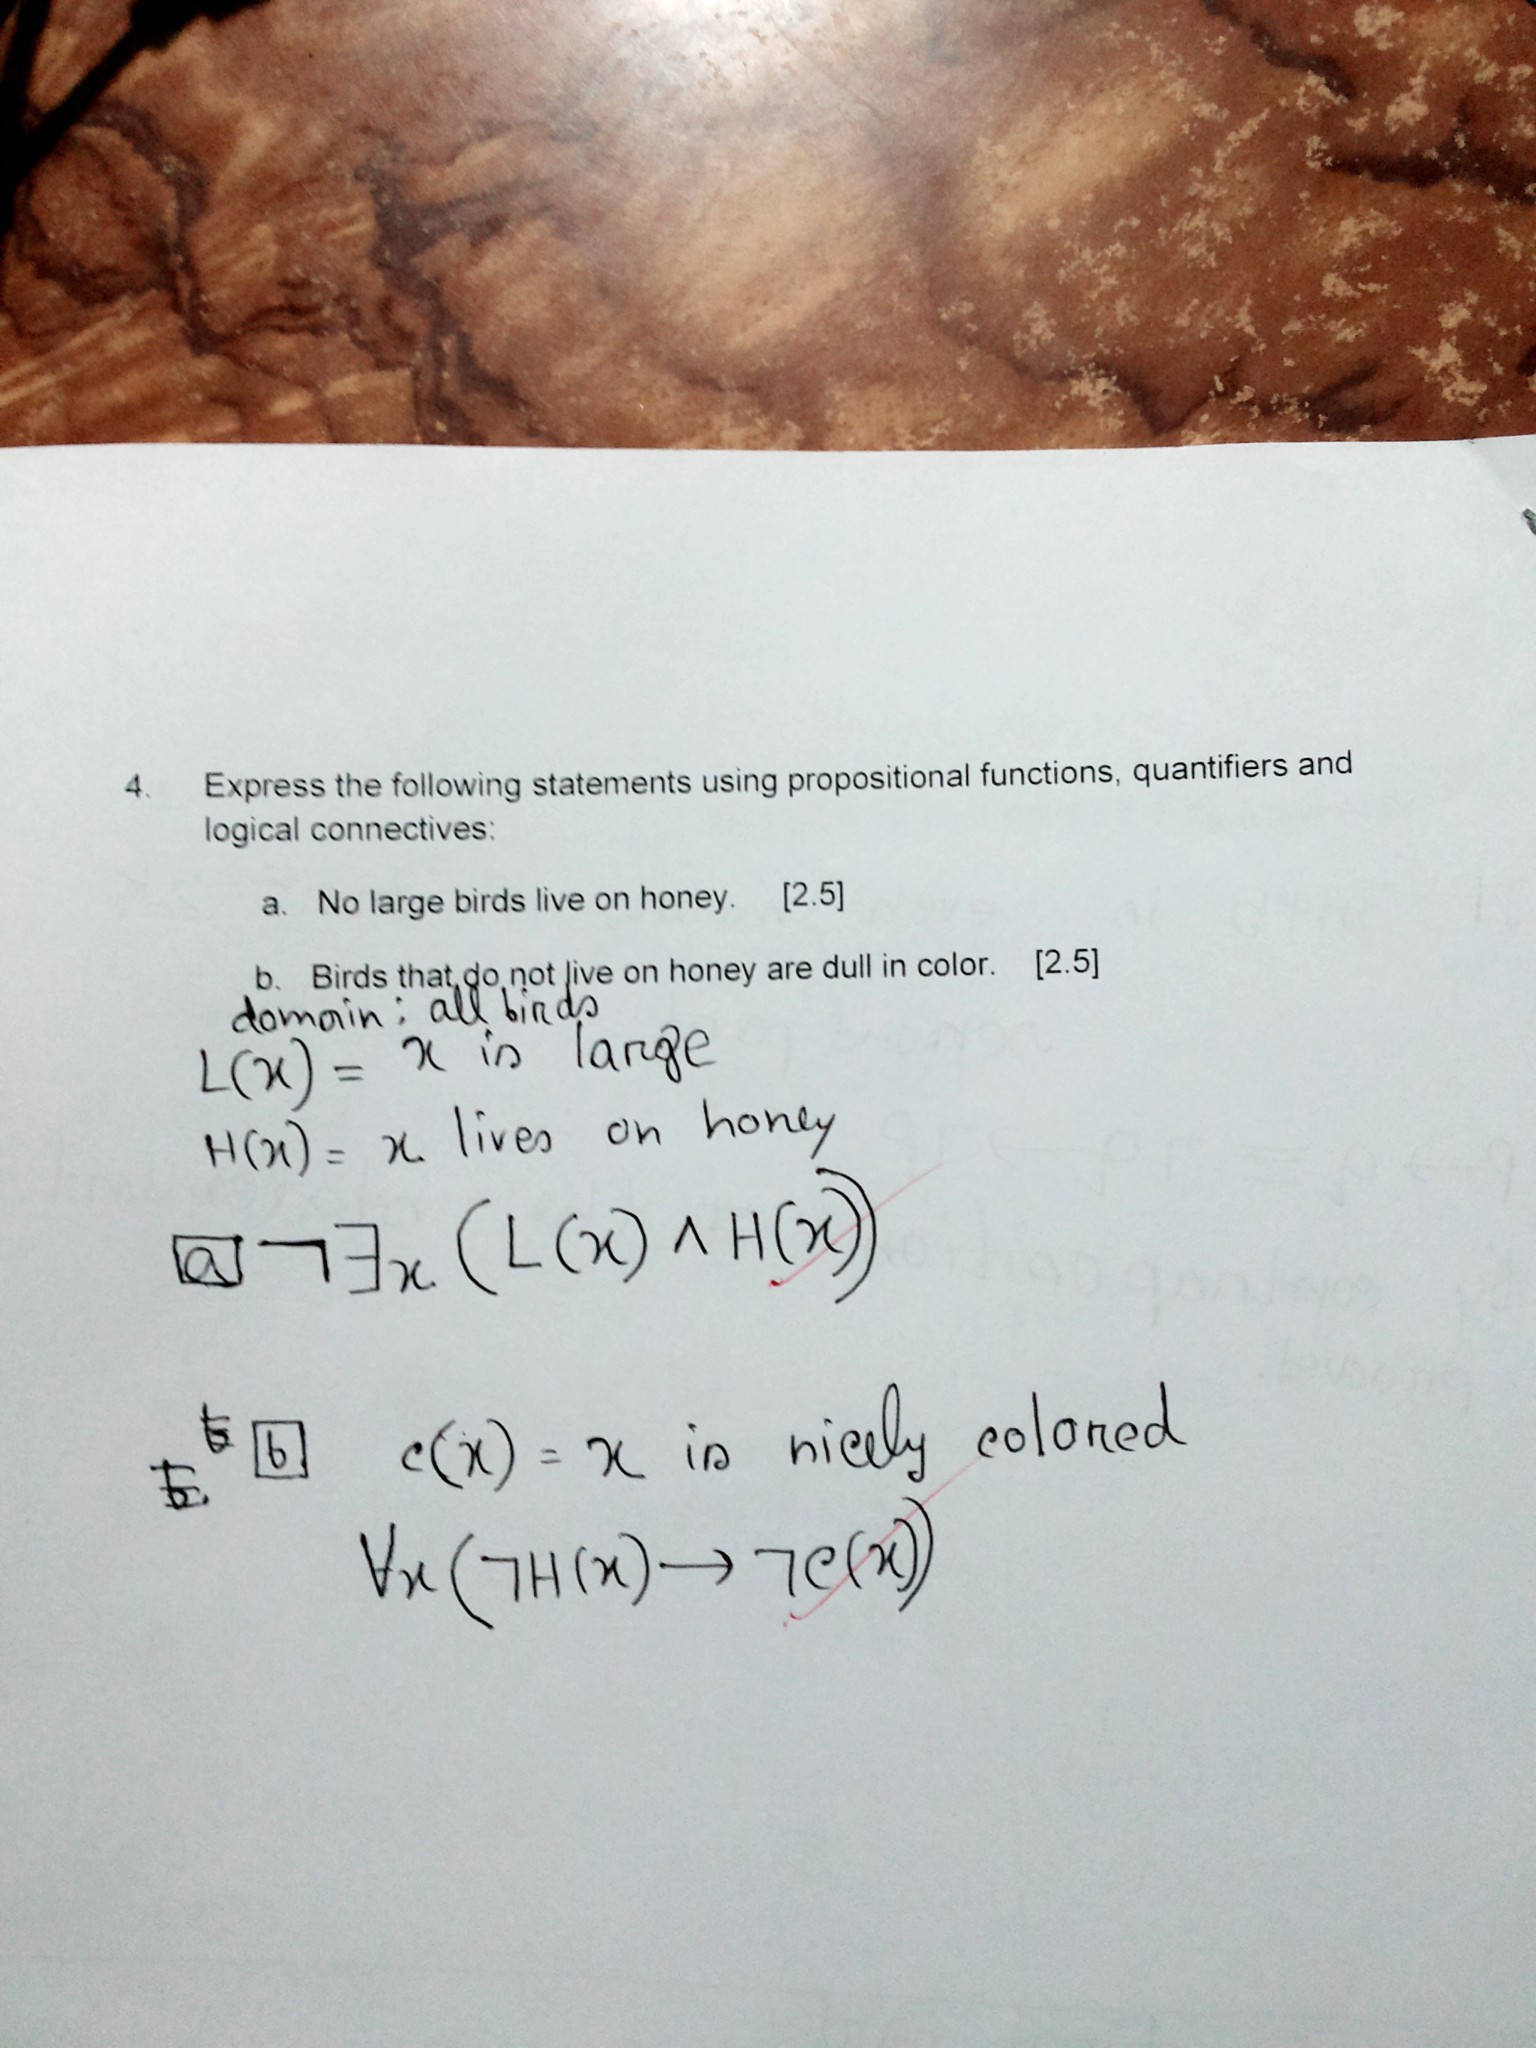 4. Express the following statements using propositional functions, quantifiers and
logical connectives:
a. No large birds live on honey. [2.5]
b. Birds that do not live on honey are dull in color. [2.5]
domain: all birds
L(x) = x is large
H(x) = x lives on honey
a ¬∃x (L(x) ∧ H(x))
b c(x) = x is nicely colored
∀x (¬H(x) → ¬C(x))